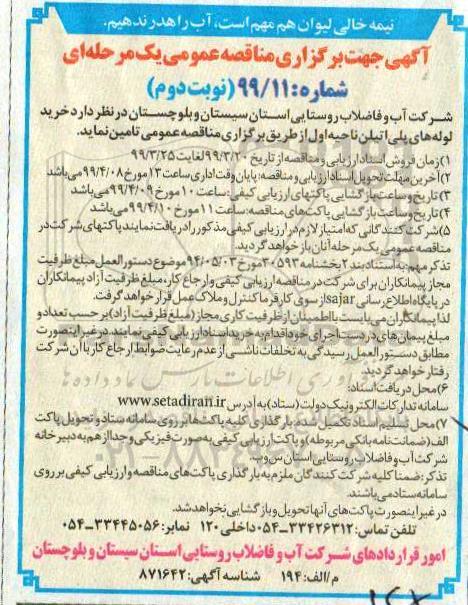 نیمه خالی لیوان هم مهم است، آب را هدر ندهیم.
آگهی جهت برگزاری مناقصه عمومی یک مرحله‌ای
شماره: ۹۹/۱۱ (نوبت دوم)
شرکت آب و فاضلاب روستایی استان سیستان و بلوچستان در نظر دارد خرید
لوله‌های پلی اتیلن ناحیه اول از طریق برگزاری مناقصه عمومی تامین نماید.
۱) زمان فروش اسناد ارزیابی و مناقصه از تاریخ ۹۹/۳/۲۰ لغایت ۹۹/۳/۲۵
۲) آخرین مهلت تحویل اسناد ارزیابی و مناقصه: پایان وقت اداری ساعت ۱۳ مورخ ۹۹/۴/۰۸ می‌باشد
۳) تاریخ و ساعت بازگشایی پاکتهای ارزیابی کیفی: ساعت ۱۰ مورخ ۹۹/۴/۰۹ می‌باشد
۴) تاریخ و ساعت بازگشایی پاکت‌های مناقصه: ساعت ۱۱ مورخ ۹۹/۴/۱۰ می‌باشد
۵) شرکت کنندگانی که امتیاز لازم در ارزیابی کیفی مذکور را دریافت نمایند پاکتهای شرکت در
مناقصه عمومی یک مرحله آنان باز خواهد گردید.
تذکر مهم: به استناد بند ۲ بخشنامه ۳۰۵۹۳ مورخ ۹۴/۰۵/۰۳ موضوع دستورالعمل مبلغ ظرفیت
مجاز پیمانکاران برای شرکت در مناقصه ارزیابی کیفی و ارجاع کار، مبلغ ظرفیت آزاد پیمانکاران
در پایگاه اطلاع رسانی sajar از سوی کارفرما کنترل و ملاک عمل قرار خواهد گرفت.
لذا پیمانکاران می‌بایست با اطمینان از ظرفیت کاری مجاز (مبلغ ظرفیت آزاد) بر حسب تعداد و
مبلغ پیمان‌های در دست اجرای خود اقدام به خرید اسناد ارزیابی کیفی نمایند. در غیر اینصورت
مطابق دستورالعمل رسیدگی به تخلفات ناشی از عدم رعایت ضوابط ارجاع کار با آن شرکت
رفتار خواهد گردید.
۶) محل دریافت اسناد:
سامانه تدارکات الکترونیک دولت (ستاد) به آدرس www.setadiran.ir
۷) محل تسلیم اسناد تکمیل شده: بارگذاری کلیه پاکت‌ها بر روی سامانه ستاد و تحویل پاکت
الف (ضمانت‌نامه بانکی مربوطه) و پاکت ارزیابی کیفی به صورت فیزیکی و جدا از هم به دبیرخانه
شرکت آب و فاضلاب روستایی استان س وب.
تذکر: ضمناً کلیه شرکت کنندگان ملزم به بارگذاری پاکت‌های مناقصه و ارزیابی کیفی بر روی
سامانه ستاد می‌باشند.
در غیر اینصورت پاکت‌های آنها تحویل و بازگشایی نخواهد شد.
تلفن تماس: ۳۳۴۲۶۳۱۲-۰۵۴ داخلی ۱۲۰ نمابر: ۳۳۴۴۵۰۵۶-۰۵۴
امور قراردادهای شرکت آب و فاضلاب روستایی استان سیستان و بلوچستان
م/الف: ۱۹۴ شناسه آگهی: ۸۷۱۶۴۲